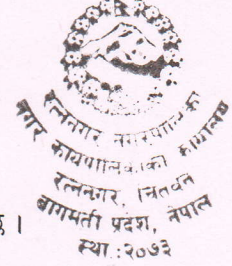 रत्ननगर नगरपालिका
नगर कार्यपालिकाको कार्यालय
रत्ननगर, चितवन
बागमती प्रदेश, नेपाल
स्था :२०७३
।